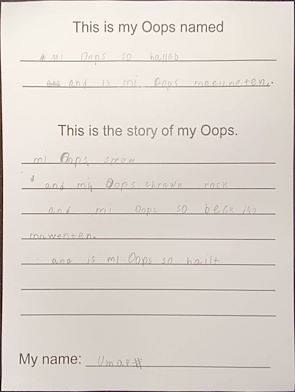 This is my Oops named
mi Oops so hailed
and is mi Oops
This is the story of my Oops.
mi Oops snow
and mi Oops thrown rock
and mi Oops so
and is mi Oops so hailt
My name: Umar#